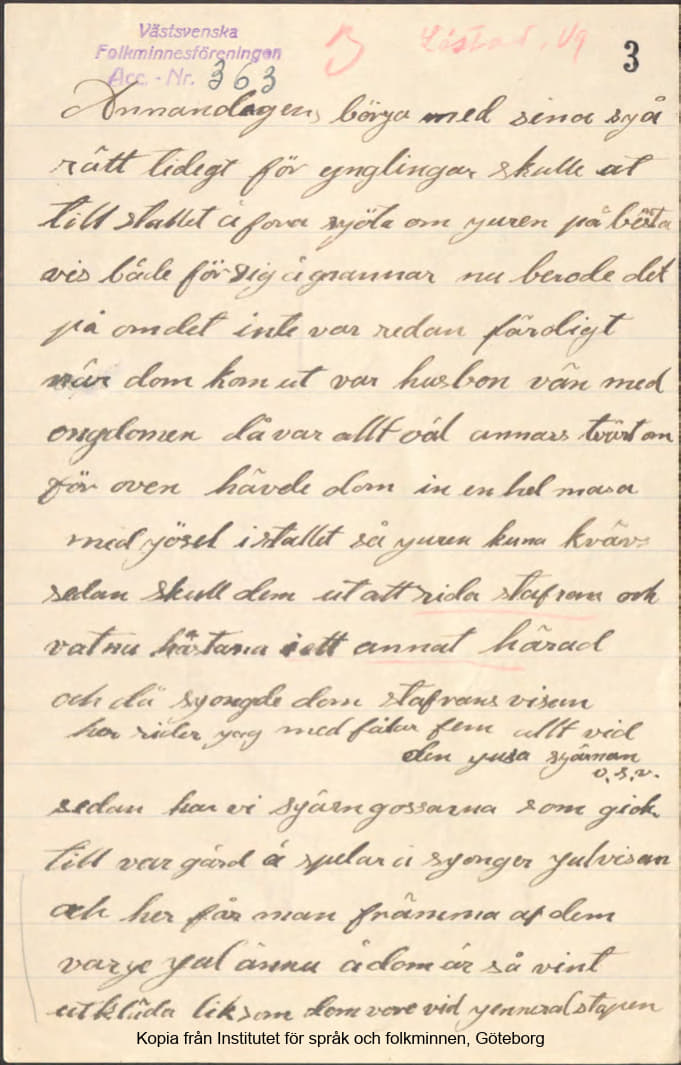 Västsvenska
Folkminnesföreningen
Acc.-Nr. 363
3
Annandagens börga med sina syå
rätt tidegt för ynglingar skulle ut
till stallet å fora syöta om yuren på bästa
vis både för sig å grannar nu berode det
på omdet inte var redan färdigt
när dom kom ut var husbon vän med
ongdomen då var allt väl annars tvärt om
för oven hävde dom in en hel masa
med yösel i stallet så yuren kuna kväv-
sedan skull dem ut att rida stafrans och
vatna hästana i ett annat härad
och då syongde dom stafrans visan
her rider yag med fålar fem allt vid
den yusa syärnan
o.s.v.
sedan har vi syärngossarna som gick
till var gård å spelar å syonger yulvisan
och her får man främma af dem
varye yul ännu å dom är så vint
utkläda liksom dom vore vid yenneralstapen
Kopia från Institutet för språk och folkminnen, Göteborg